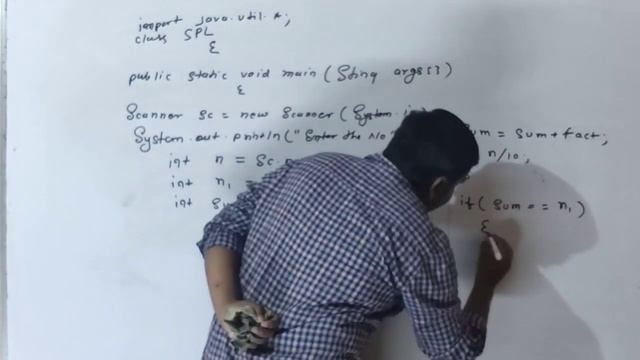 import java.util.*;
class SPL
{
public static void main(String args[])
{
Scanner sc = new Scanner(System.
System.out.println("Enter the No"
int n = Sc.
int n1 =
int
sum = sum + fact;
n/10;
if(sum == n1)
{